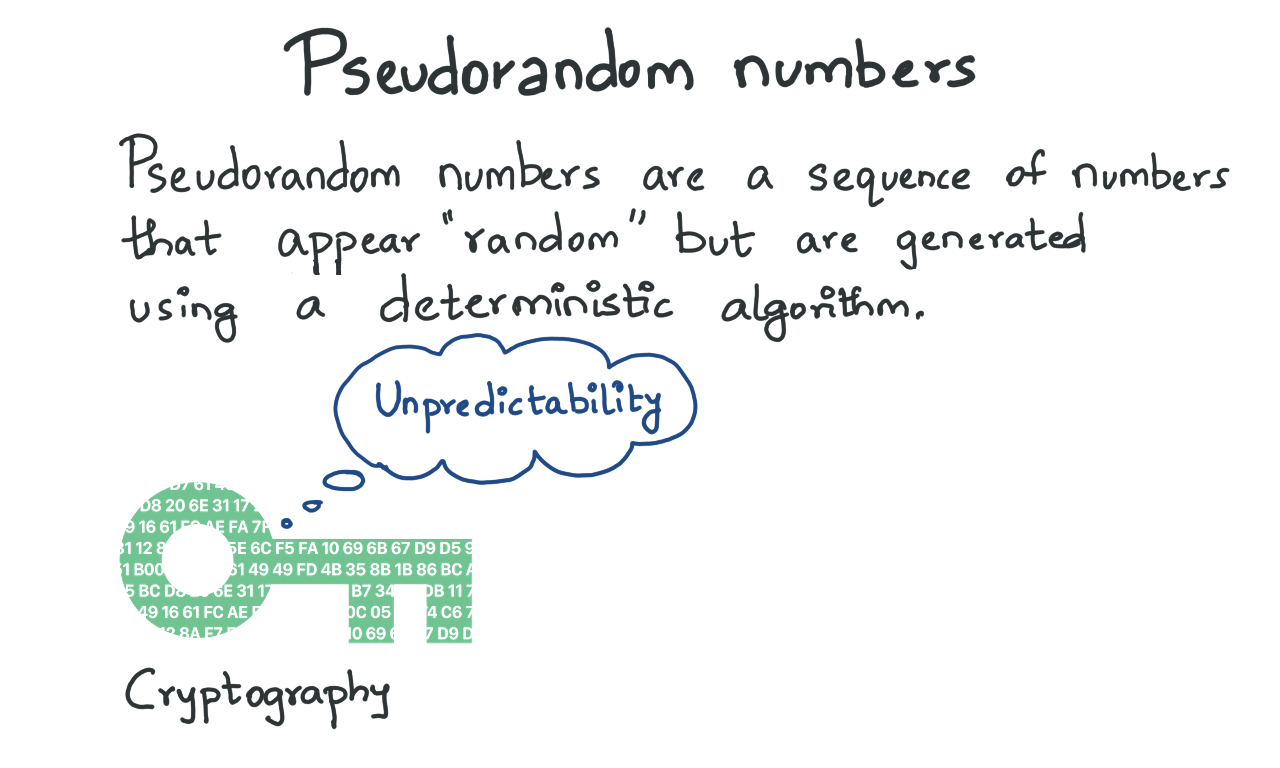 Pseudorandom numbers
Pseudorandom numbers are a sequence of numbers
that appear "random" but are generated
using a deterministic algorithm.
Unpredictability
D8 20 6E 31 17
16 61 AE FA 7F
12 5E 6C F5 FA 10 69 6B 67 D9 D5
B00 61 49 49 FD 4B 35 8B 1B 86 BC
BC 6E 31 17 B7 34 DB 11
49 16 61 FC AE 0C 05 C6
8A F7 10 69 D9
Cryptography